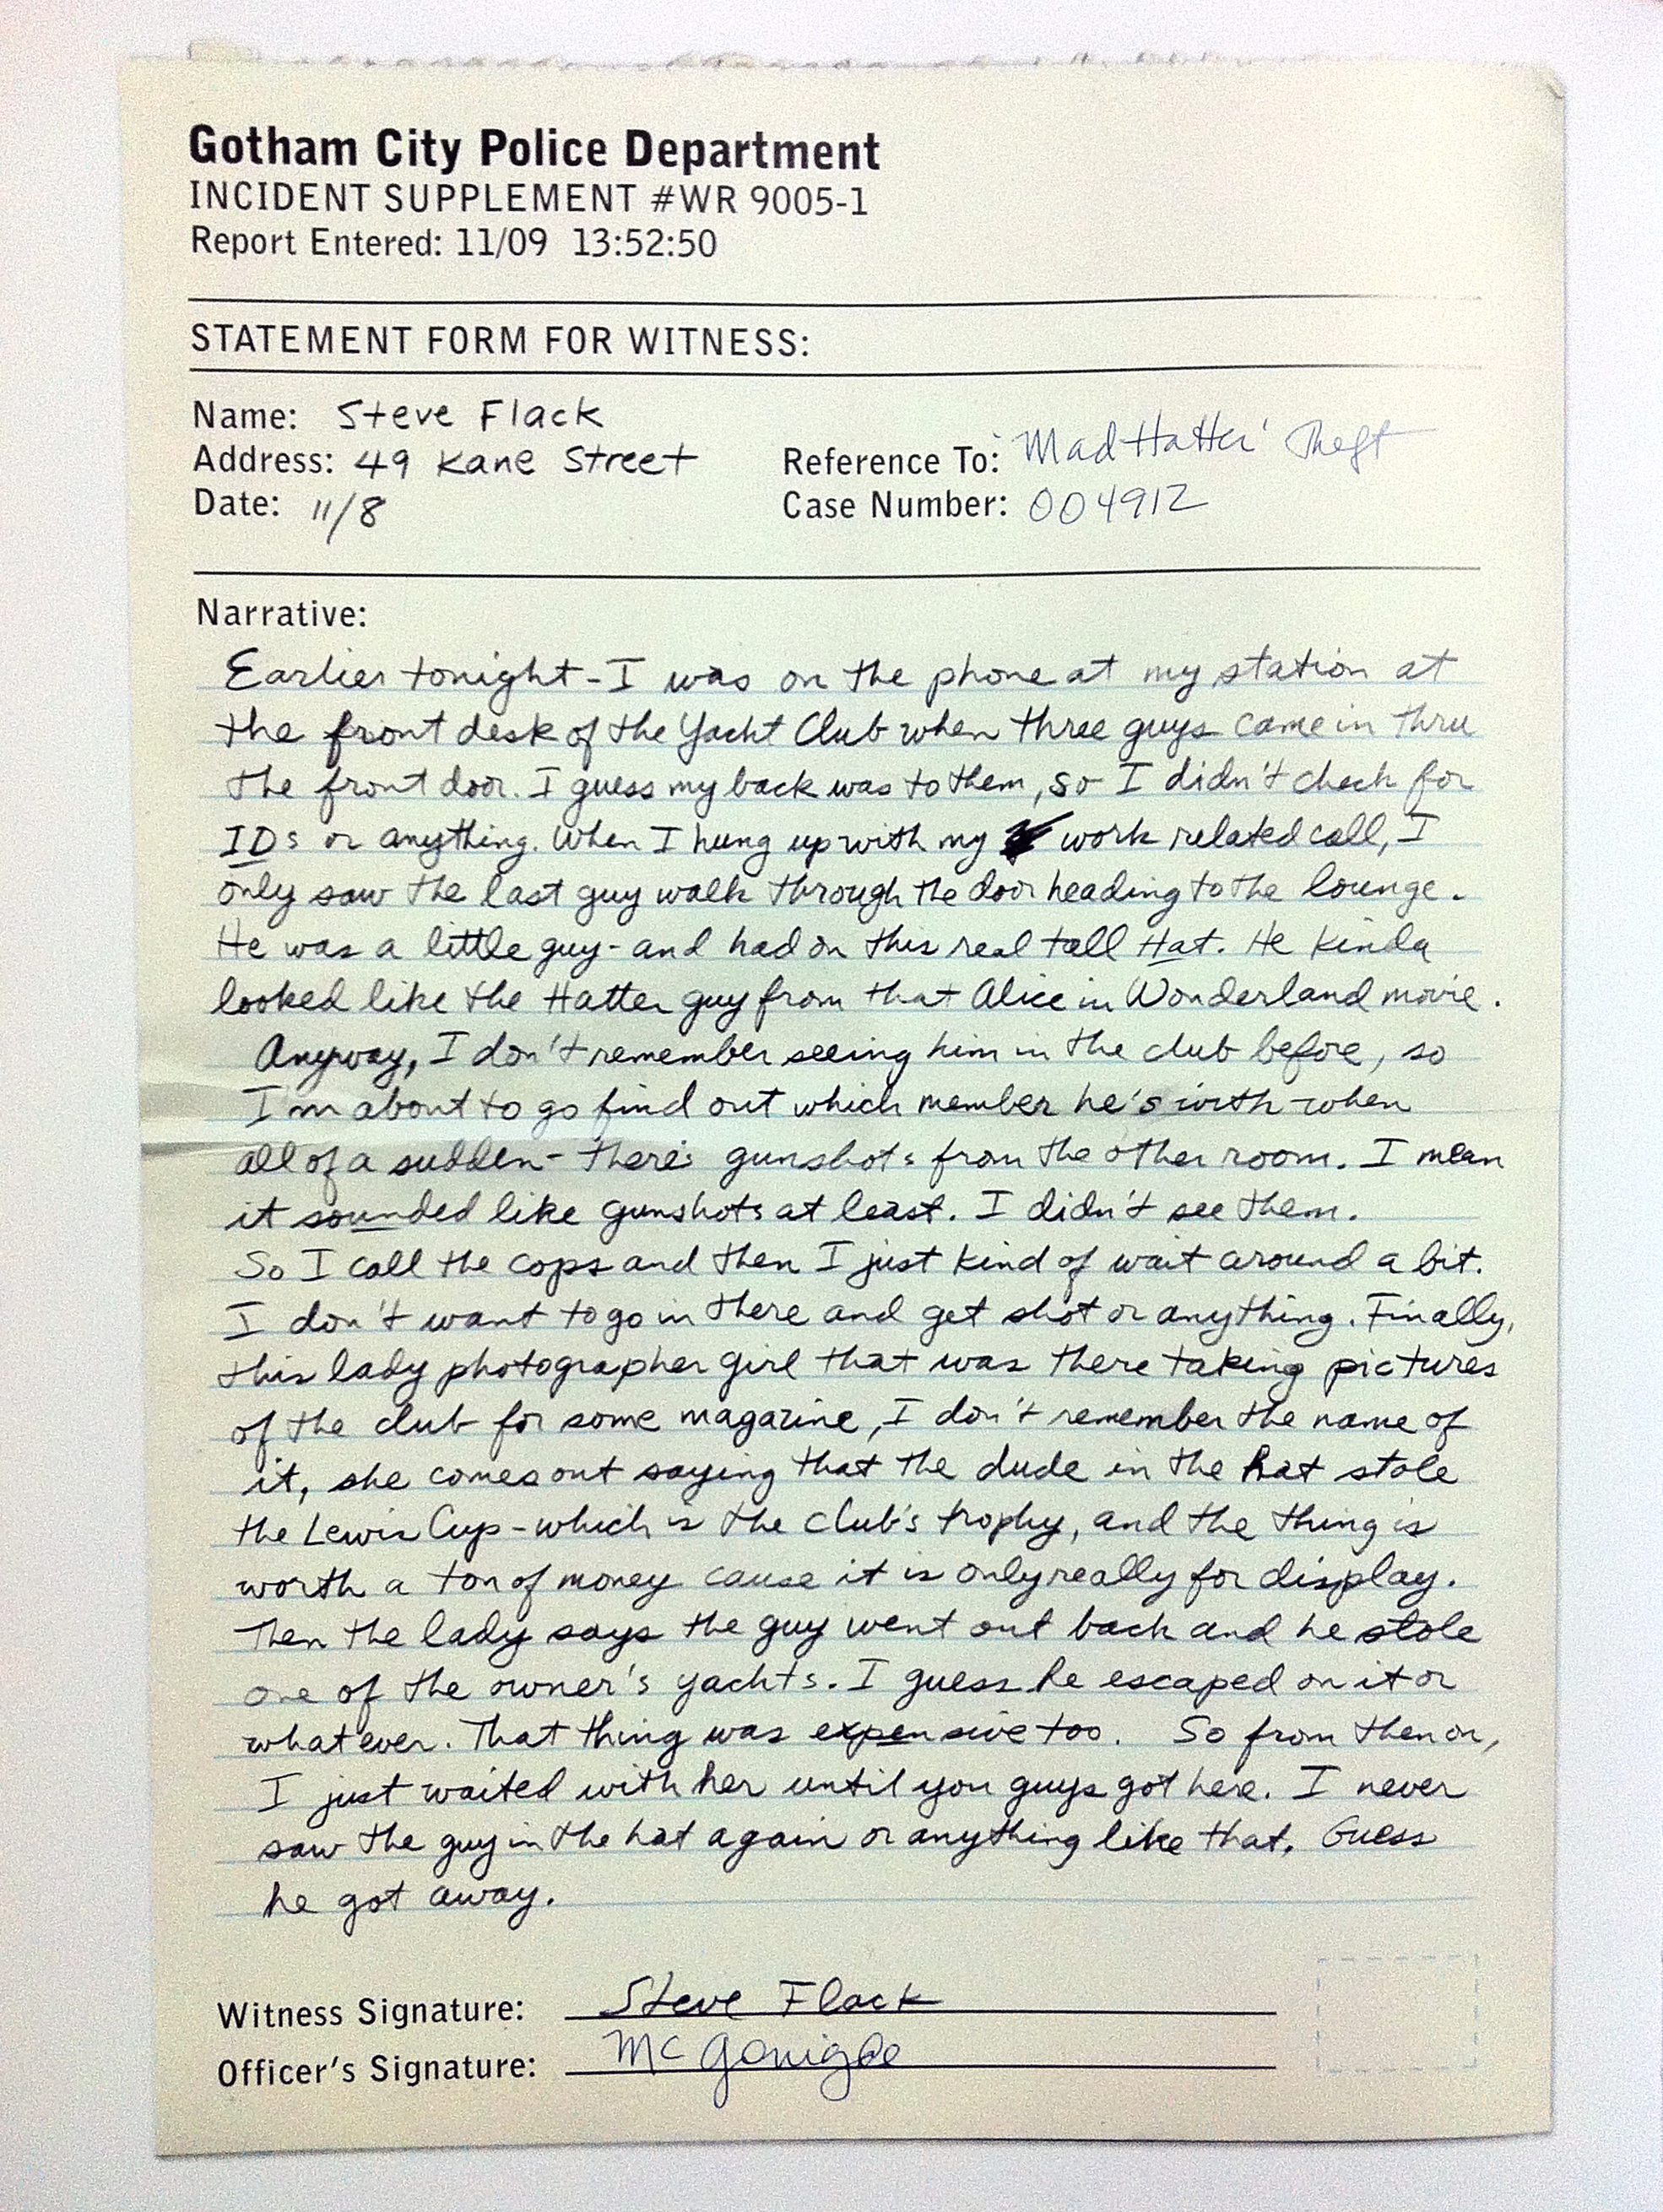 Gotham City Police Department
INCIDENT SUPPLEMENT #WR 9005-1
Report Entered: 11/09 13:52:50
STATEMENT FORM FOR WITNESS:
Name: Steve Flack
Address: 49 Kane Street
Date: 11/8
Reference To: 'Mad Hatter' Theft
Case Number: 004912
Narrative:
Earlier tonight - I was on the phone at my station at
the front desk of the Yacht Club when three guys came in thru
the front door. I guess my back was to them, so I didn't check for
IDs or anything. When I hung up with my work related call, I
only saw the last guy walk through the door heading to the lounge.
He was a little guy - and had on this real tall Hat. He kinda
looked like the Hatter guy from that Alice in Wonderland movie.
Anyway, I don't remember seeing him in the club before, so
I'm about to go find out which member he's with when
all of a sudden - there's gunshots from the other room. I mean
it sounded like gunshots at least. I didn't see them.
So I call the cops and then I just kind of wait around a bit.
I don't want to go in there and get shot or anything. Finally,
this lady photographer girl that was there taking pictures
of the club for some magazine, I don't remember the name of
it, she comes out saying that the dude in the hat stole
the Lewis Cup - which is the club's trophy, and the thing is
worth a ton of money cause it is only really for display.
Then the lady says the guy went out back and he stole
one of the owner's yachts. I guess he escaped on it or
whatever. That thing was expensive too. So from then on,
I just waited with her until you guys got here. I never
saw the guy in the hat again or anything like that. Guess
he got away.
Witness Signature: Steve Flack
Officer's Signature: McGonigle